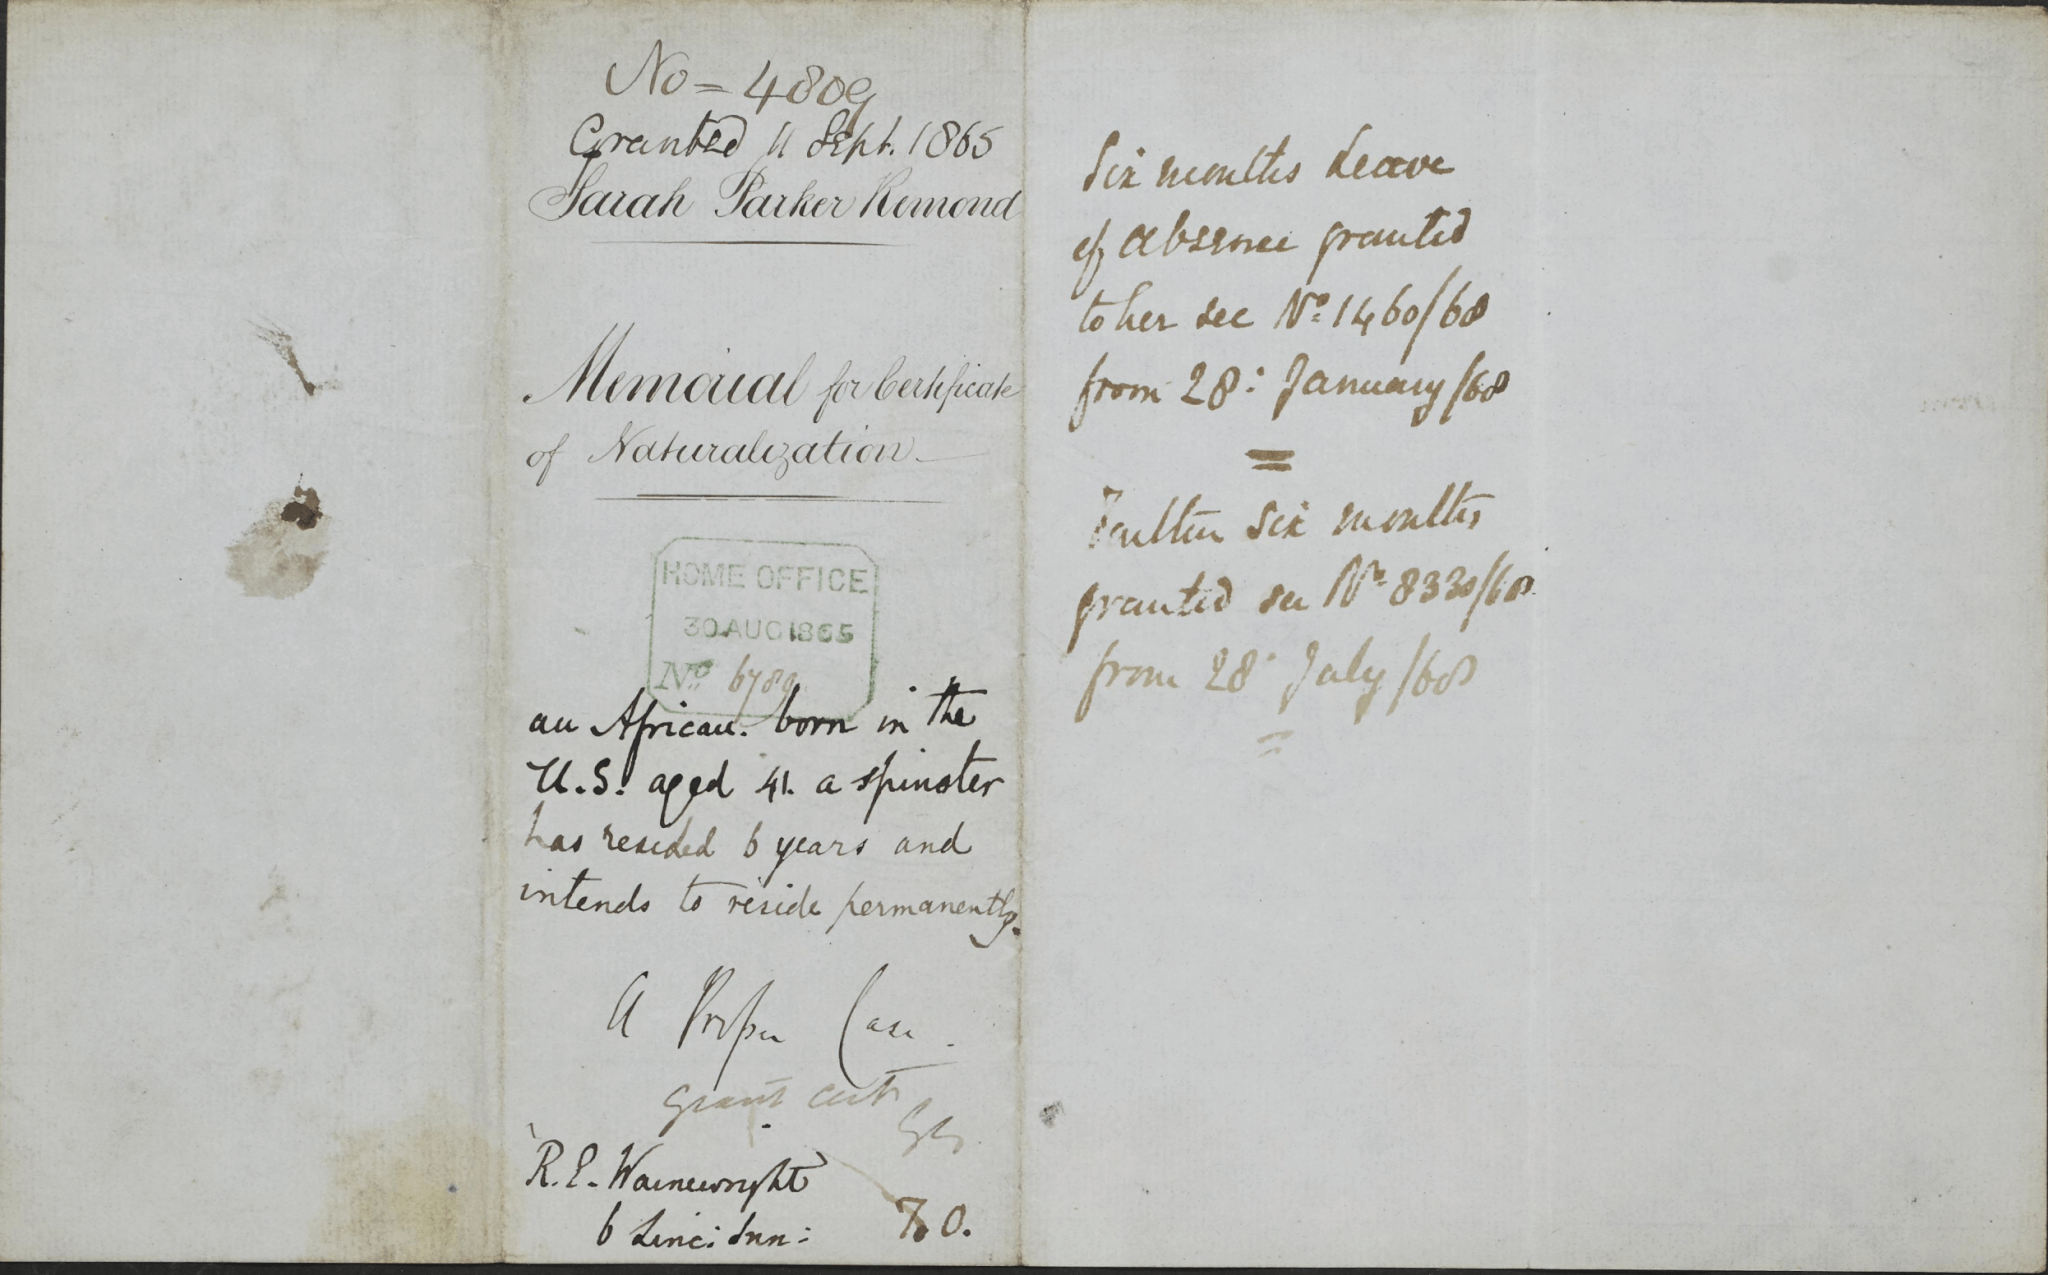 No = 4809
Granted 11 Sept. 1865
Sarah Parker Remond
Memorial for Certificate
of Naturalization
HOME OFFICE
30 AUG 1865
No. 6789
an African. born in the
U.S. aged 41. a spinster
has resided 6 years and
intends to reside permanently.
A Proper Case.
grant cert
R. E. Wainewright
6 Linc: Inn:
7.0.
Six months Leave
of Absence granted
to her see No. 1460/68
from 28: January/68
Further six months
granted see No. 8330/68
from 28: July/68